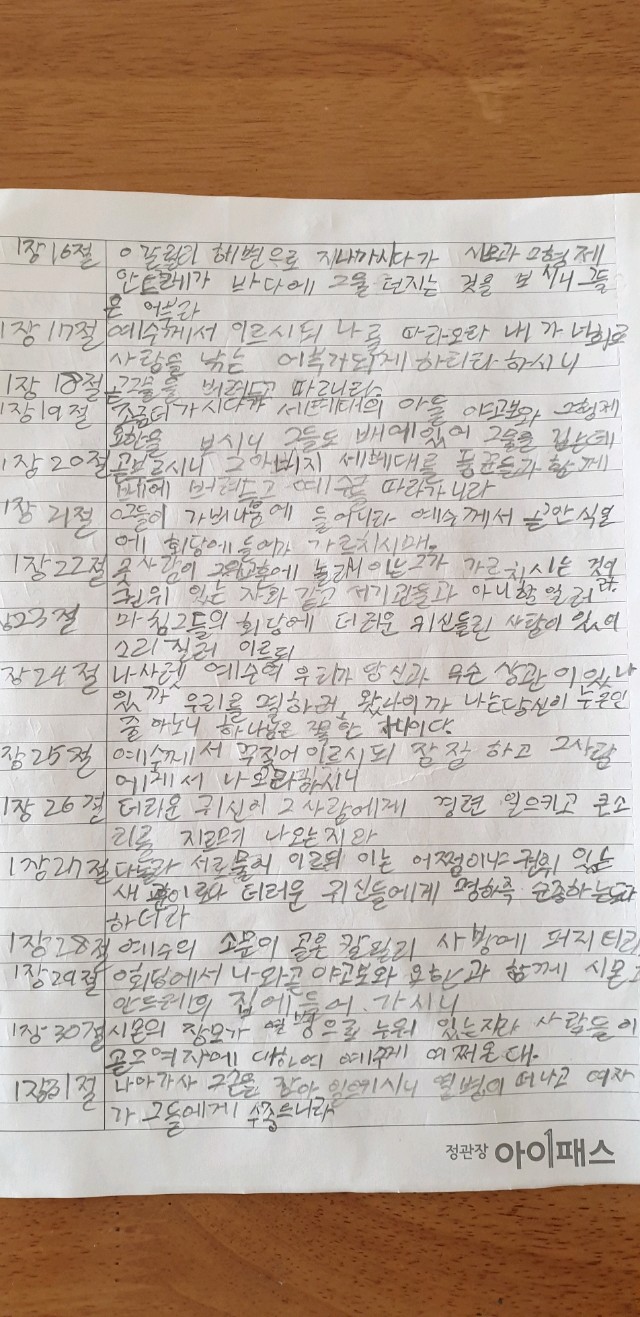 1장16절 ㅇ갈릴리 해변으로 지나가시다가 시몬과 그형제
안드레가 바다에 그물 던지는 것을 보시니 그들
은 어부라
1장17절 예수께서 이르시되 나를 따라오라 내가 너희로
사람을 낚는 어부가되게 하리라 하시니
1장18절 곧그물을 버려두고 따르니라
1장19절 조금더가시다가 세베대의 아들 야고보와 그형제
요한을 보시니 그들도 배에있어 그물을 깁는데
1장20절 곧부르시니 그아버지 세베대를 품꾼들과 함께
배에 버려두고 예수를 따라가니라
1장21절 ㅇ그들이 가버나움에 들어가니라 예수께서 곧안식일
에 회당에들어가 가르치시매
1장22절 뭇사람이 그의교훈에 놀라니 이는그가 가르치시는 것이
권위 있는 자와 같고 서기관들과 아니함 일러라
장23절 마침그들의 회당에 더러운 귀신들린 사람이 있어
소리 질러 이르되
장24절 나사렛 예수여 우리가 당신과 무슨 상관이 있나
있까 우리를 멸하러 왔나이까 나는당신이 누구인
줄 아노니 하나님은 니이다.
장25절 예수께서 꾸짖어 이르시되 잠잠 하고 그사람
에게서 나오라하시니
1장26절 더러운 귀신이 그사람에게 경련 일으키고 큰소
리를 지르며 나오는지라
1장27절 다놀라 서로물어 이르되 이는 어쩜이냐 권위 있는
새 더러운 귀신들에게 명하측 순종하는도다
하더라
1장28절 예수의 소문이 곧온 갈릴리 사방에 퍼지더라
1장29절 ㅇ회당에서 나와곧 야고보와 요한과 함께 시몬과
안드레의 집에들어 가시니
1장30절 시몬의 장모가 열병으로 누워 있는지라 사람들이
곧그여자에 대하여 예수께 여쭈온대.
1장31절 나아가사 그손을 잡아 일으키시니 열병이 떠나고 여자
가 그들에게 수종드니라
정관장 아이패스